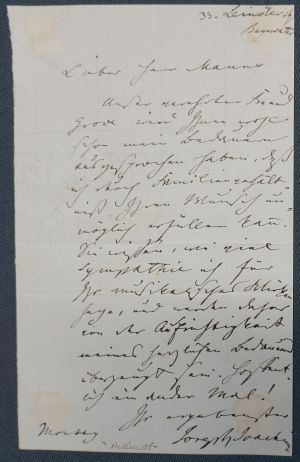 33. Leinster
Bayswater
Lieber Herr Manns
Unser verehrter Freund
Grove wird Ihnen wohl
schon mein Bedauern
ausgesprochen haben, daß
ich durch Familienverhält-
nisse Ihren Wunsch un-
möglich erfüllen kann.
Sie wissen, wie viel
Sympathie ich für
Ihr musikalisches Wirken
hege, und werden daher
von der Aufrichtigkeit
meines herzlichen Bedauerns
überzeugt sein. Hoffent-
lich ein ander Mal!
Ihr ergebenster
Joseph Joachim
Monday